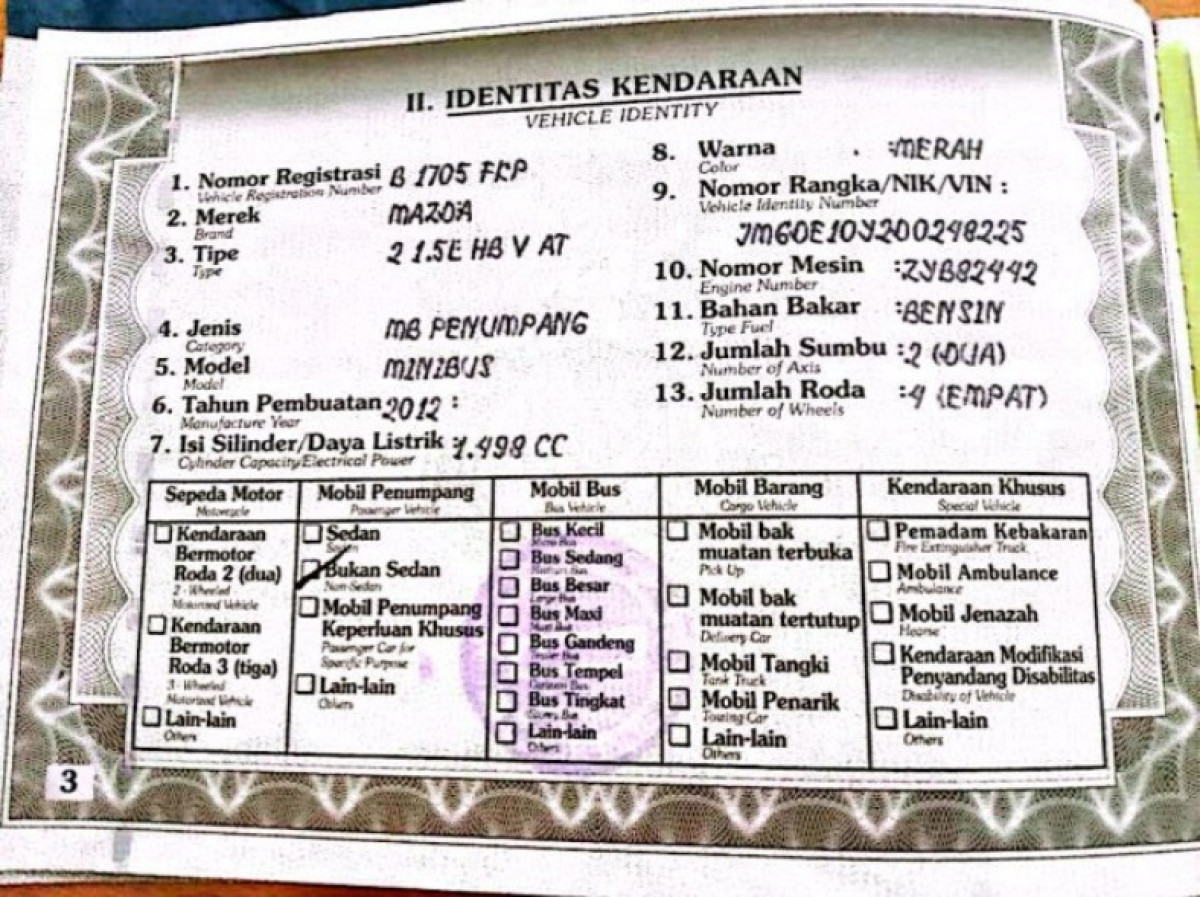 II. IDENTITAS KENDARAAN
VEHICLE IDENTITY
1. Nomor Registrasi B 1705 FRP
Vehicle Registration Number
2. Merek MAZDA
Brand
3. Tipe 2 1.5E HB V AT
Type
4. Jenis MB PENUMPANG
Category
5. Model MINIBUS
Model
6. Tahun Pembuatan 2012 :
Manufacture Year
7. Isi Silinder/Daya Listrik : 1.498 CC
Cylinder Capacity/Electrical Power
8. Warna : MERAH
Color
9. Nomor Rangka/NIK/VIN :
Vehicle Identity Number
JM6DE10Y200248225
10. Nomor Mesin : ZYB82442
Engine Number
11. Bahan Bakar : BENSIN
Type Fuel
12. Jumlah Sumbu : 2 (DUA)
Number of Axis
13. Jumlah Roda : 4 (EMPAT)
Number of Wheels
Sepeda Motor
Motorcycle
Kendaraan
Bermotor
Roda 2 (dua)
2 - Wheeled
Motorized Vehicle
Kendaraan
Bermotor
Roda 3 (tiga)
3 - Wheeled
Motorized Vehicle
Lain-lain
Others
Mobil Penumpang
Passenger Vehicle
Sedan
Bukan Sedan
Non-Sedan
Mobil Penumpang
Keperluan Khusus
Passenger Car for
Specific Purpose
Lain-lain
Others
Mobil Bus
Bus Vehicle
Bus Kecil
Bus Sedang
Bus Besar
Large Bus
Bus Maxi
Maxi Bus
Bus Gandeng
Bus Tempel
Bus Tingkat
Lain-lain
Others
Mobil Barang
Cargo Vehicle
Mobil bak
muatan terbuka
Pick Up
Mobil bak
muatan tertutup
Delivery Car
Mobil Tangki
Tank Truck
Mobil Penarik
Towing Car
Lain-lain
Others
Kendaraan Khusus
Special Vehicle
Pemadam Kebakaran
Fire Extinguisher Truck
Mobil Ambulance
Ambulance
Mobil Jenazah
Hearse
Kendaraan Modifikasi
Penyandang Disabilitas
Disability of Vehicle
Lain-lain
Others
3